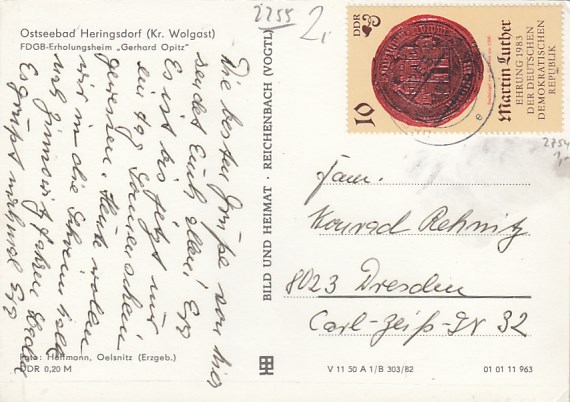 Ostseebad Heringsdorf (Kr. Wolgast)
FDGB-Erholungsheim „Gerhard Opitz"
2255
2,
Die besten Grüße von hier
sendet Euch allen
Es ist bis jetzt nur
ein Tag
gewesen. Heute wollen
wir in die
und Zinnowitz fahren
Es grüßt nochmal
Foto: Hoffmann, Oelsnitz (Erzgeb.)
DDR 0,20 M
BILD UND HEIMAT · REICHENBACH (VOGTL)
V 11 50 A 1/B 303/82
01 01 11 963
DDR
10
Martin Luther
EHRUNG 1983
DER DEUTSCHEN
DEMOKRATISCHEN
REPUBLIK
2754
1,-
Fam.
Konrad Rehnitz
8023 Dresden
Carl-Zeiß-Str 32